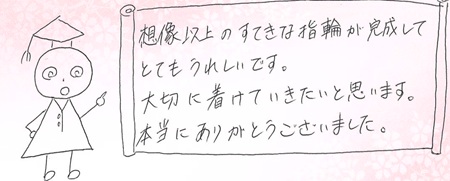 想像以上のすてきな指輪が完成して
とてもうれしいです。
大切に着けていきたいと思います。
本当にありがとうございました。